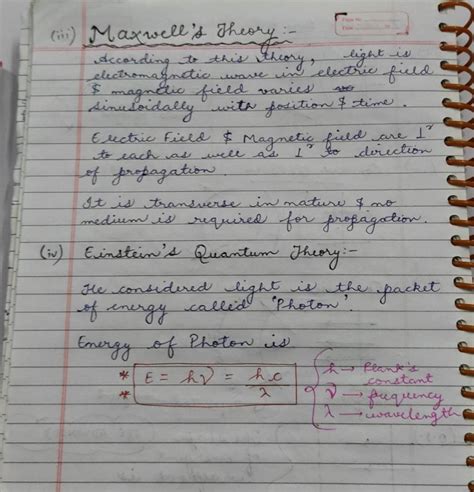 (iii) Maxwell's Theory :-
According to this theory, light is
electromagnetic wave in electric field
& magnetic field varies
sinusoidally with position & time.
Electric Field & Magnetic field are ⊥ʳ
to each as well as ⊥ʳ to direction
of propagation.
It is transverse in nature & no
medium is required for propagation.
(iv) Einstein's Quantum Theory:-
He considered light is the packet
of energy called "Photon".
Energy of Photon is
* E = hν = h.c/λ
*
h → Plank's
constant
ν → frequency
λ → wavelength